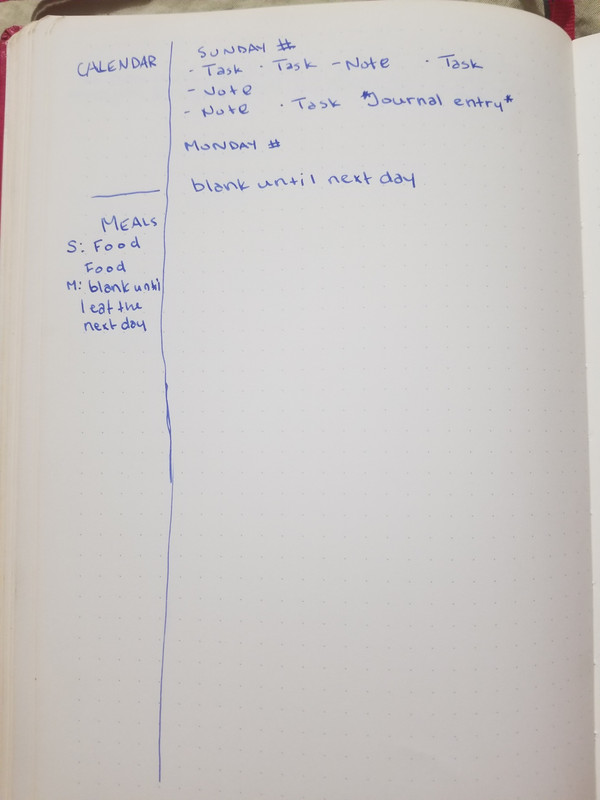 CALENDAR
SUNDAY #
· Task · Task - Note · Task
- Note
- Note · Task *Journal entry*
MONDAY #
blank until next day
MEALS
S: Food
Food
M: blank until
I eat the
next day